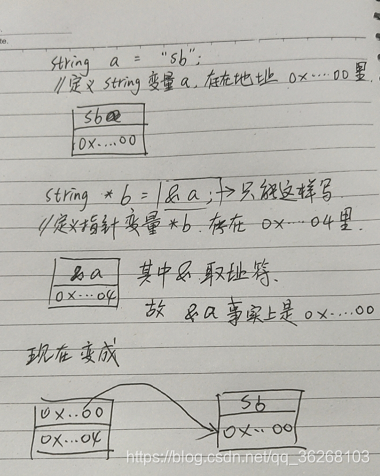 string a = "sb";
//定义 string 变量 a, 存在地址 0x…00 里.
sb
0x…00
string * b = &a; → 只能这样写
//定义指针变量 *b. 存在 0x…04 里.
&a 其中 & 取址符.
0x…04
故 &a 事实上是 0x…00
现在变成
0x…00 sb
0x…04 0x…00
https://blog.csdn.net/qq_36268103